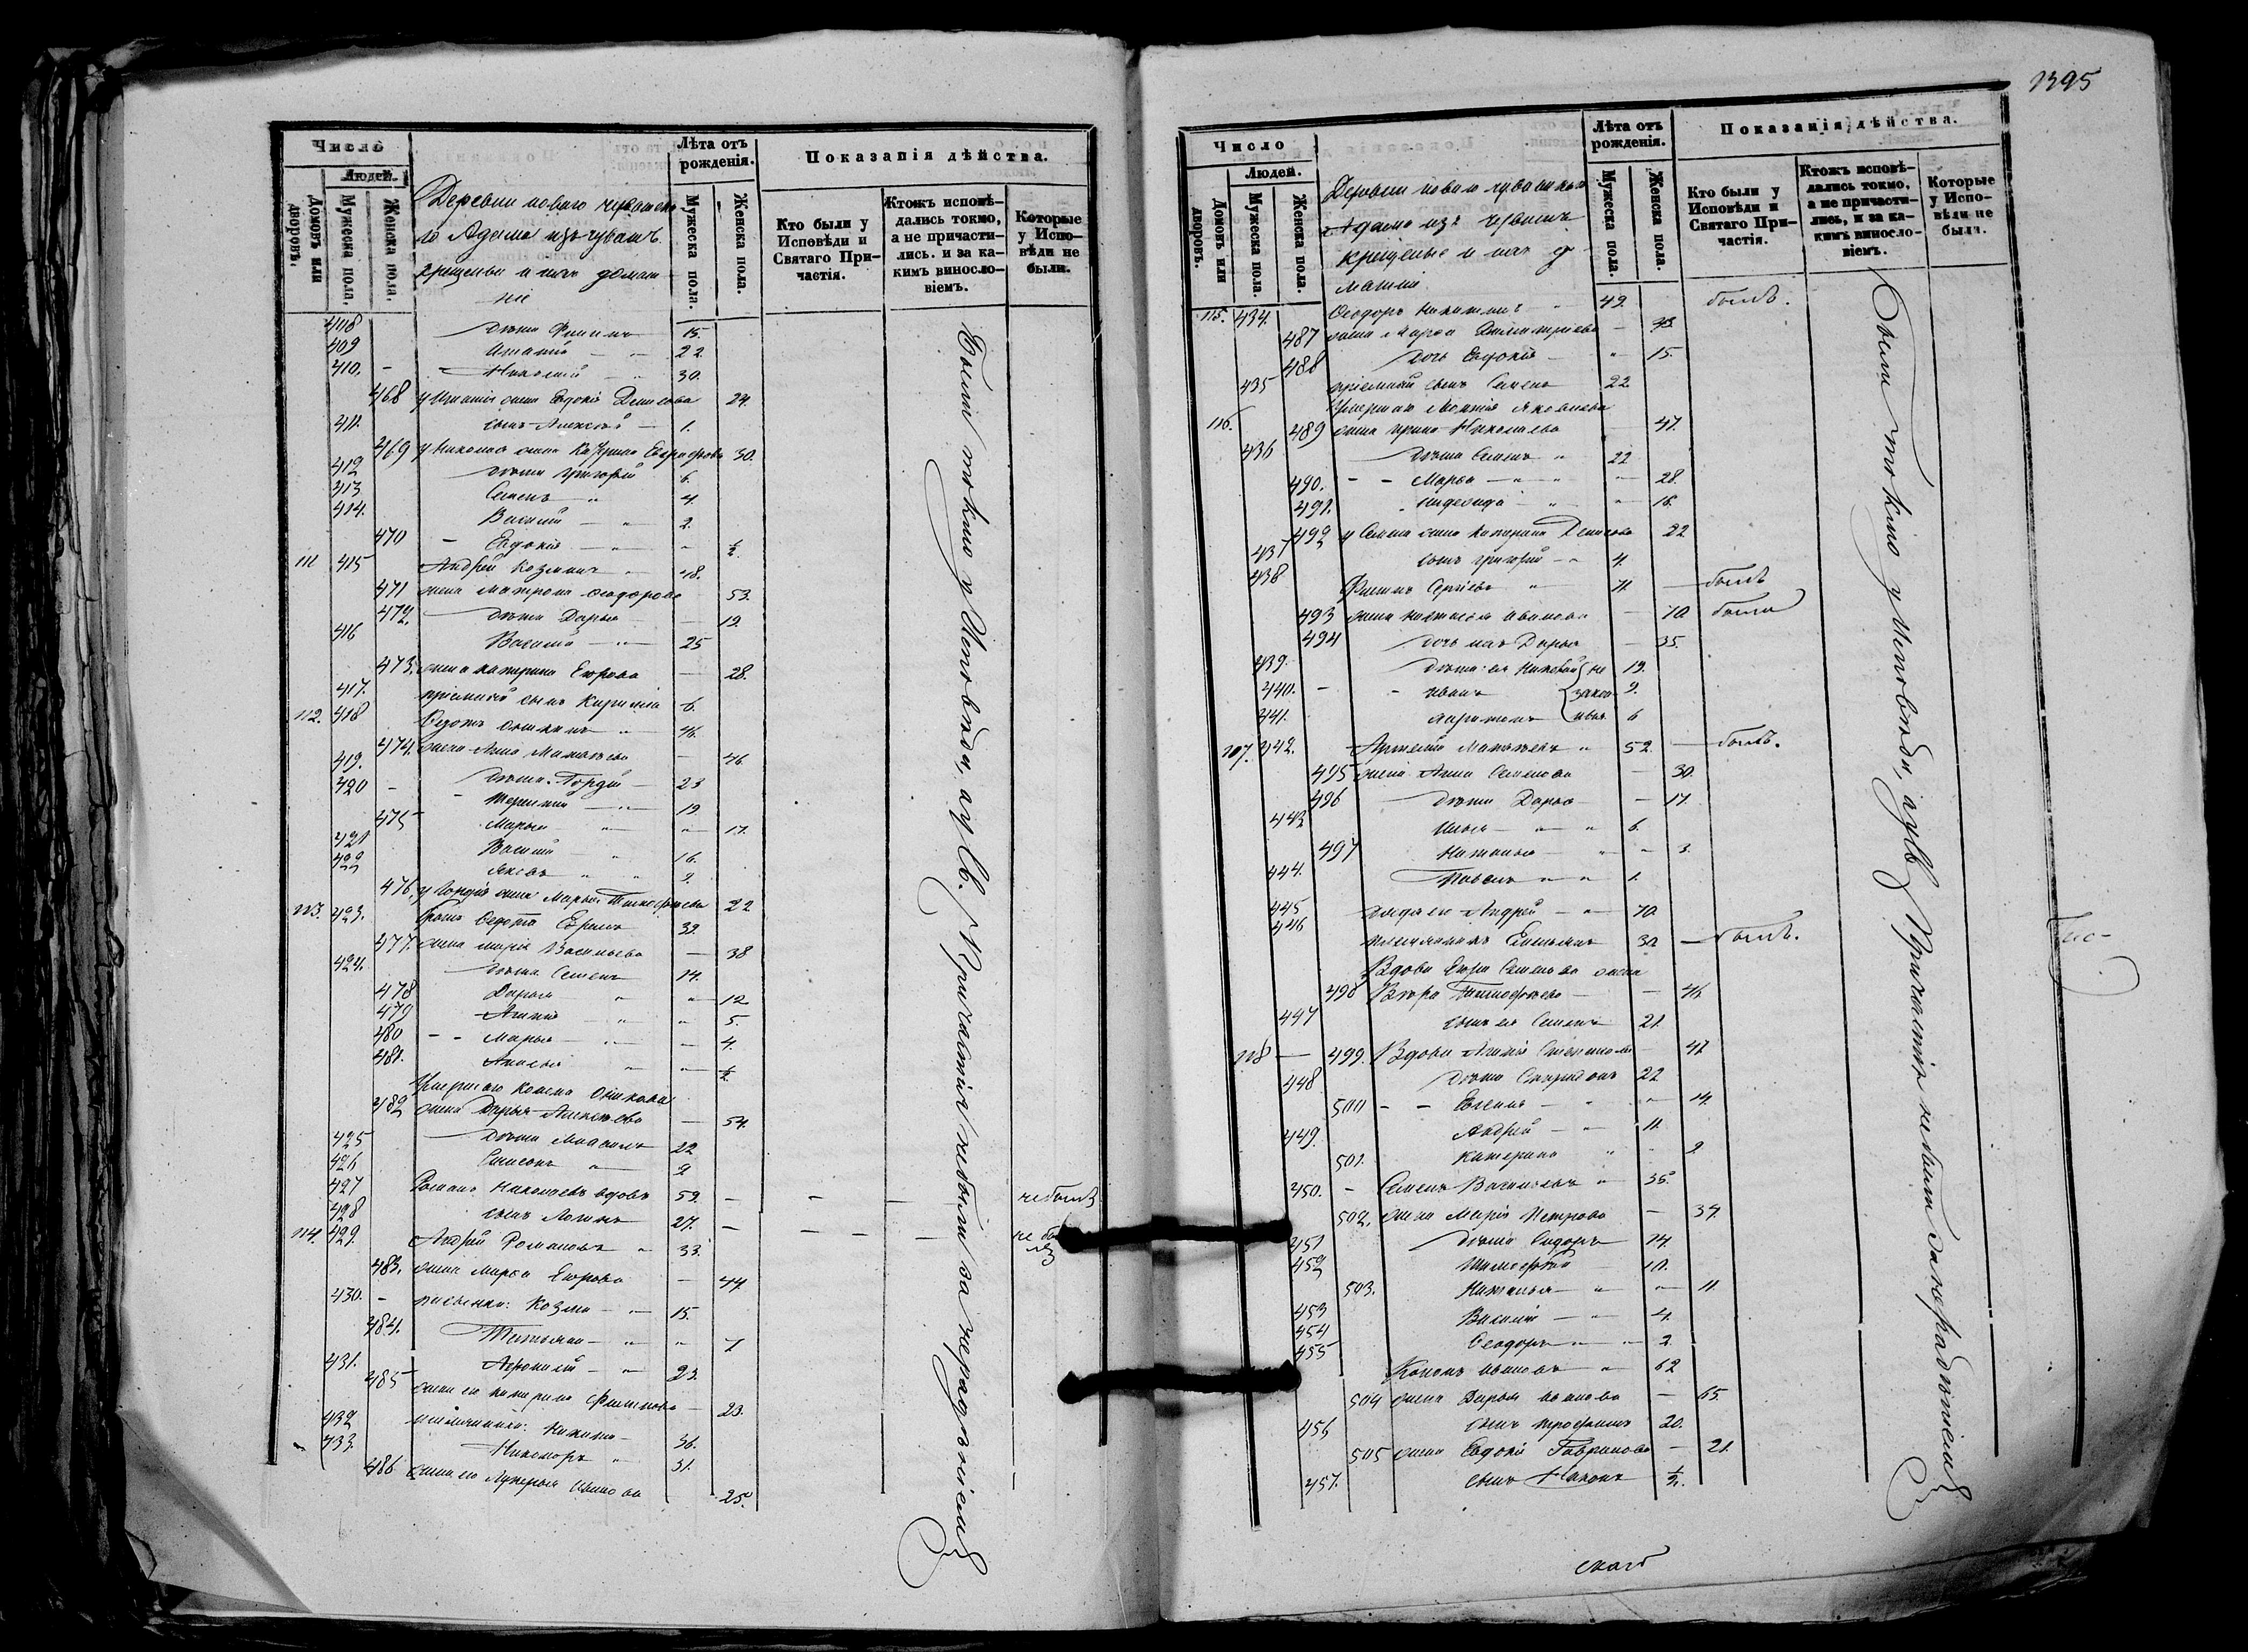 Число
Людей.
Домовъ или дворовъ.
Мужеска пола.
Женска пола.
Деревни новаго чувашска-
го Адама изъ чувашъ
крещеные и ихъ домаш-
ніе
Лѣта отъ рожденія.
Мужеска пола.
Женска пола.
Показанія дѣйства.
Кто были у Исповѣди и Святаго При-частія.
Ктожъ исповѣ-дались токмо, а не причасти-лись. и за ка-кимъ винословіемъ.
Которые у Испо-вѣди не были.
408 дѣти Филипъ 15.
409 Игнатій 22
410. Николай 30.
468 у Игнатія жена Евдокія Денисова 24.
411. сынъ Алексѣй 1.
469 у Николая жена 30.
412 дѣти Григорій 6.
413 Семенъ 4.
414. Василій 2.
470 Евдокія ½
111 415 Андрей Козминъ 48.
471 жена Матрона Феодорова 53.
472. дѣти Дарья 19.
416 Василій 25
473. жена Катерина Егорова 28.
417. пріемный сынъ Кирилла 6.
112. 418 Федотъ 46.
474. жена Анна Матвѣева 46
419. дѣти: Гордѣй 23
420 19.
475 Марья 17.
421 Василій 16.
422 Яковъ 9.
476. у Гордѣя жена Марья Тимофеева 22
113. 423. братъ Федота Ефимъ 39.
477. жена Марія Васильева 38
424. дѣти Семенъ 14.
478 Дарья 12
479 5.
480 Марья 4.
481. ½
Умершаго
482 жена Дарья Алексѣева 54.
425 дѣти 22
426 9
427 Романъ Николаевъ вдовъ 59. не былъ
428 сынъ 27.
114. 429. Андрей Романовъ 33. не былъ
483. жена Марѳа Егорова 44
430. пасынки: Козма 15.
484. Татьяна 7
431. Аѳанасій 23.
485 жена его Катерина Филипова 23.
432 племянники: Никита 36.
433. Никифоръ 31.
486 жена его Лукерья Иванова 25.
Были токмо у Исповѣди, а у Св. Причастія не были за нерадѣніемъ
1395
Число
Людей.
Домовъ или дворовъ.
Мужеска пола.
Женска пола.
Деревни новаго чувашскаго
Адама изъ чувашъ
крещеные и ихъ до-
машніе
Лѣта отъ рожденія.
Мужеска пола.
Женска пола.
Показанія дѣйства.
Кто были у Исповѣди и Святаго При-частія.
Ктожъ исповѣ-дались токмо, а не причасти-лись, и за ка-кимъ винословіемъ.
Которые у Испо-вѣди не были.
115. 434. Феодоръ Никитинъ 49. былъ.
487 жена Марѳа Димитріева
488 дочь Евдокія 15.
435 пріемный сынъ Семенъ 22
Умершаго Яковлева
116. 489 жена Ирина Николаева 47.
436 дѣти Семенъ 22
490. Марья 28.
491. 16.
492 у Семена жена Катерина Денисова 22
437 сынъ Григорій 4.
438 Филипъ Сергѣевъ былъ
493 жена Настасья Иванова 70 была
494 дочь ихъ Дарья 35.
439. дѣти ея Николай 19.
440. Иванъ 9.
441. Харитонъ 6
незаконные
117. 442. Артемій Матвѣевъ 52. былъ.
495 жена Анна Семенова 30.
496 дѣти Дарья 17.
443 Илья 6.
497 Наталья 3.
444. Павелъ 1.
445 дядя его Андрей 70.
446 племянникъ Емельянъ 30 былъ.
Вдова Егора Семенова жена
498 Вѣра Тимофѣева 46
447 сынъ ея Семенъ 21.
118 499. Вдова Степанова 47
448 дѣти Спиридонъ 22
500 14.
449. Андрей 11.
501. Катерина 9.
450. Семенъ Васильевъ 36.
502. жена Марія Петрова 37.
451 дѣти Сидоръ 14.
452 Тимофей 10.
503. Наталья 11.
453 Василій 4.
454 Феодоръ 2.
455 Кононъ Ивановъ 62
504 жена Дарья Иванова 65.
456 сынъ Трофимъ 20.
505 жена Евдокія Гаврилова 21.
457. сынъ ½.
Были токмо у Исповѣди, а у Св. Причастія не были за нерадѣніемъ